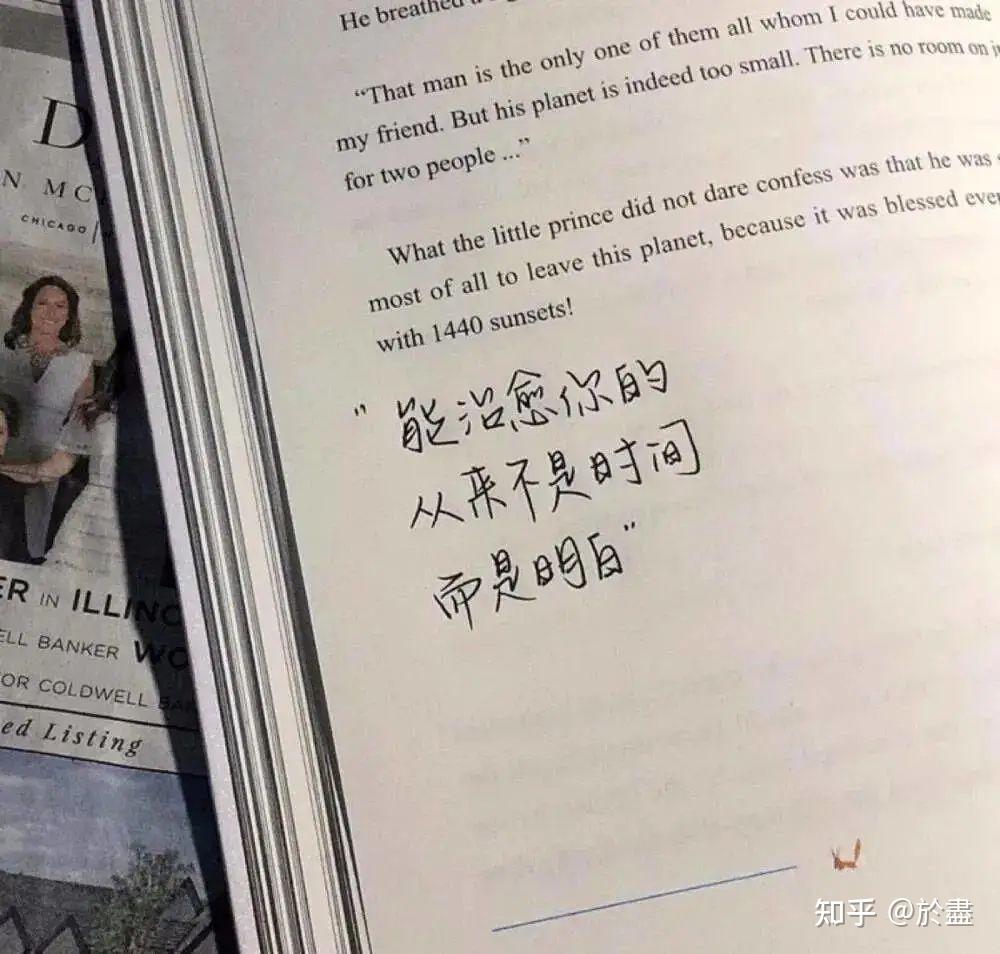 He breathed
“That man is the only one of them all whom I could have made
my friend. But his planet is indeed too small. There is no room on
for two people ...”
What the little prince did not dare confess was that he was
most of all to leave this planet, because it was blessed
with 1440 sunsets!
"能治愈你的
从来不是时间
而是明白"
D
N MC
CHICAGO
IN ILLINO
ELL BANKER WO
OR COLDWELL BA
ed Listing
知乎 @於盡